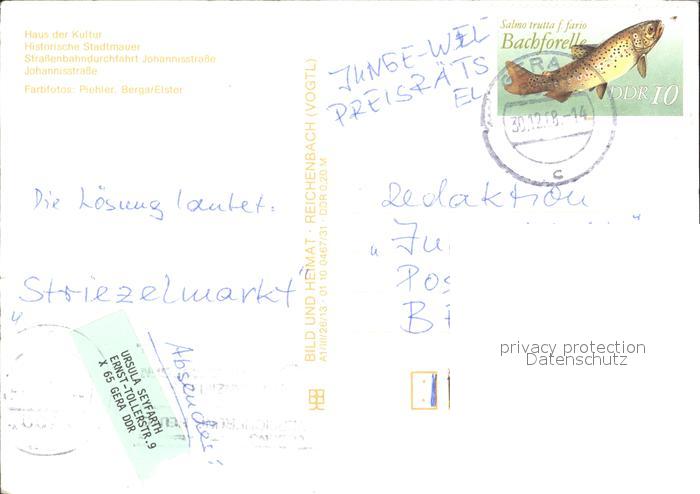 Haus der Kultur
Historische Stadtmauer
Straßenbahndurchfahrt Johannisstraße
Johannisstraße
Farbfotos: Piehler, Berga/Elster
JUNGE-WEL
PREISRÄTS
EL
Salmo trutta f. fario
Bachforelle
DDR 10
GERA
30.12.88.-14
c
Die Lösung lautet:
"Striezelmarkt"
BILD UND HEIMAT · REICHENBACH (VOGTL)
A1/III/26/13 · 01 10 0467/31 · DDR 0,20 M
Redaktion
"Ju
Pos
B
Absender:
URSULA SEYFARTH
ERNST-TOLLERSTR.9
X 65 GERA DDR
privacy protection
Datenschutz